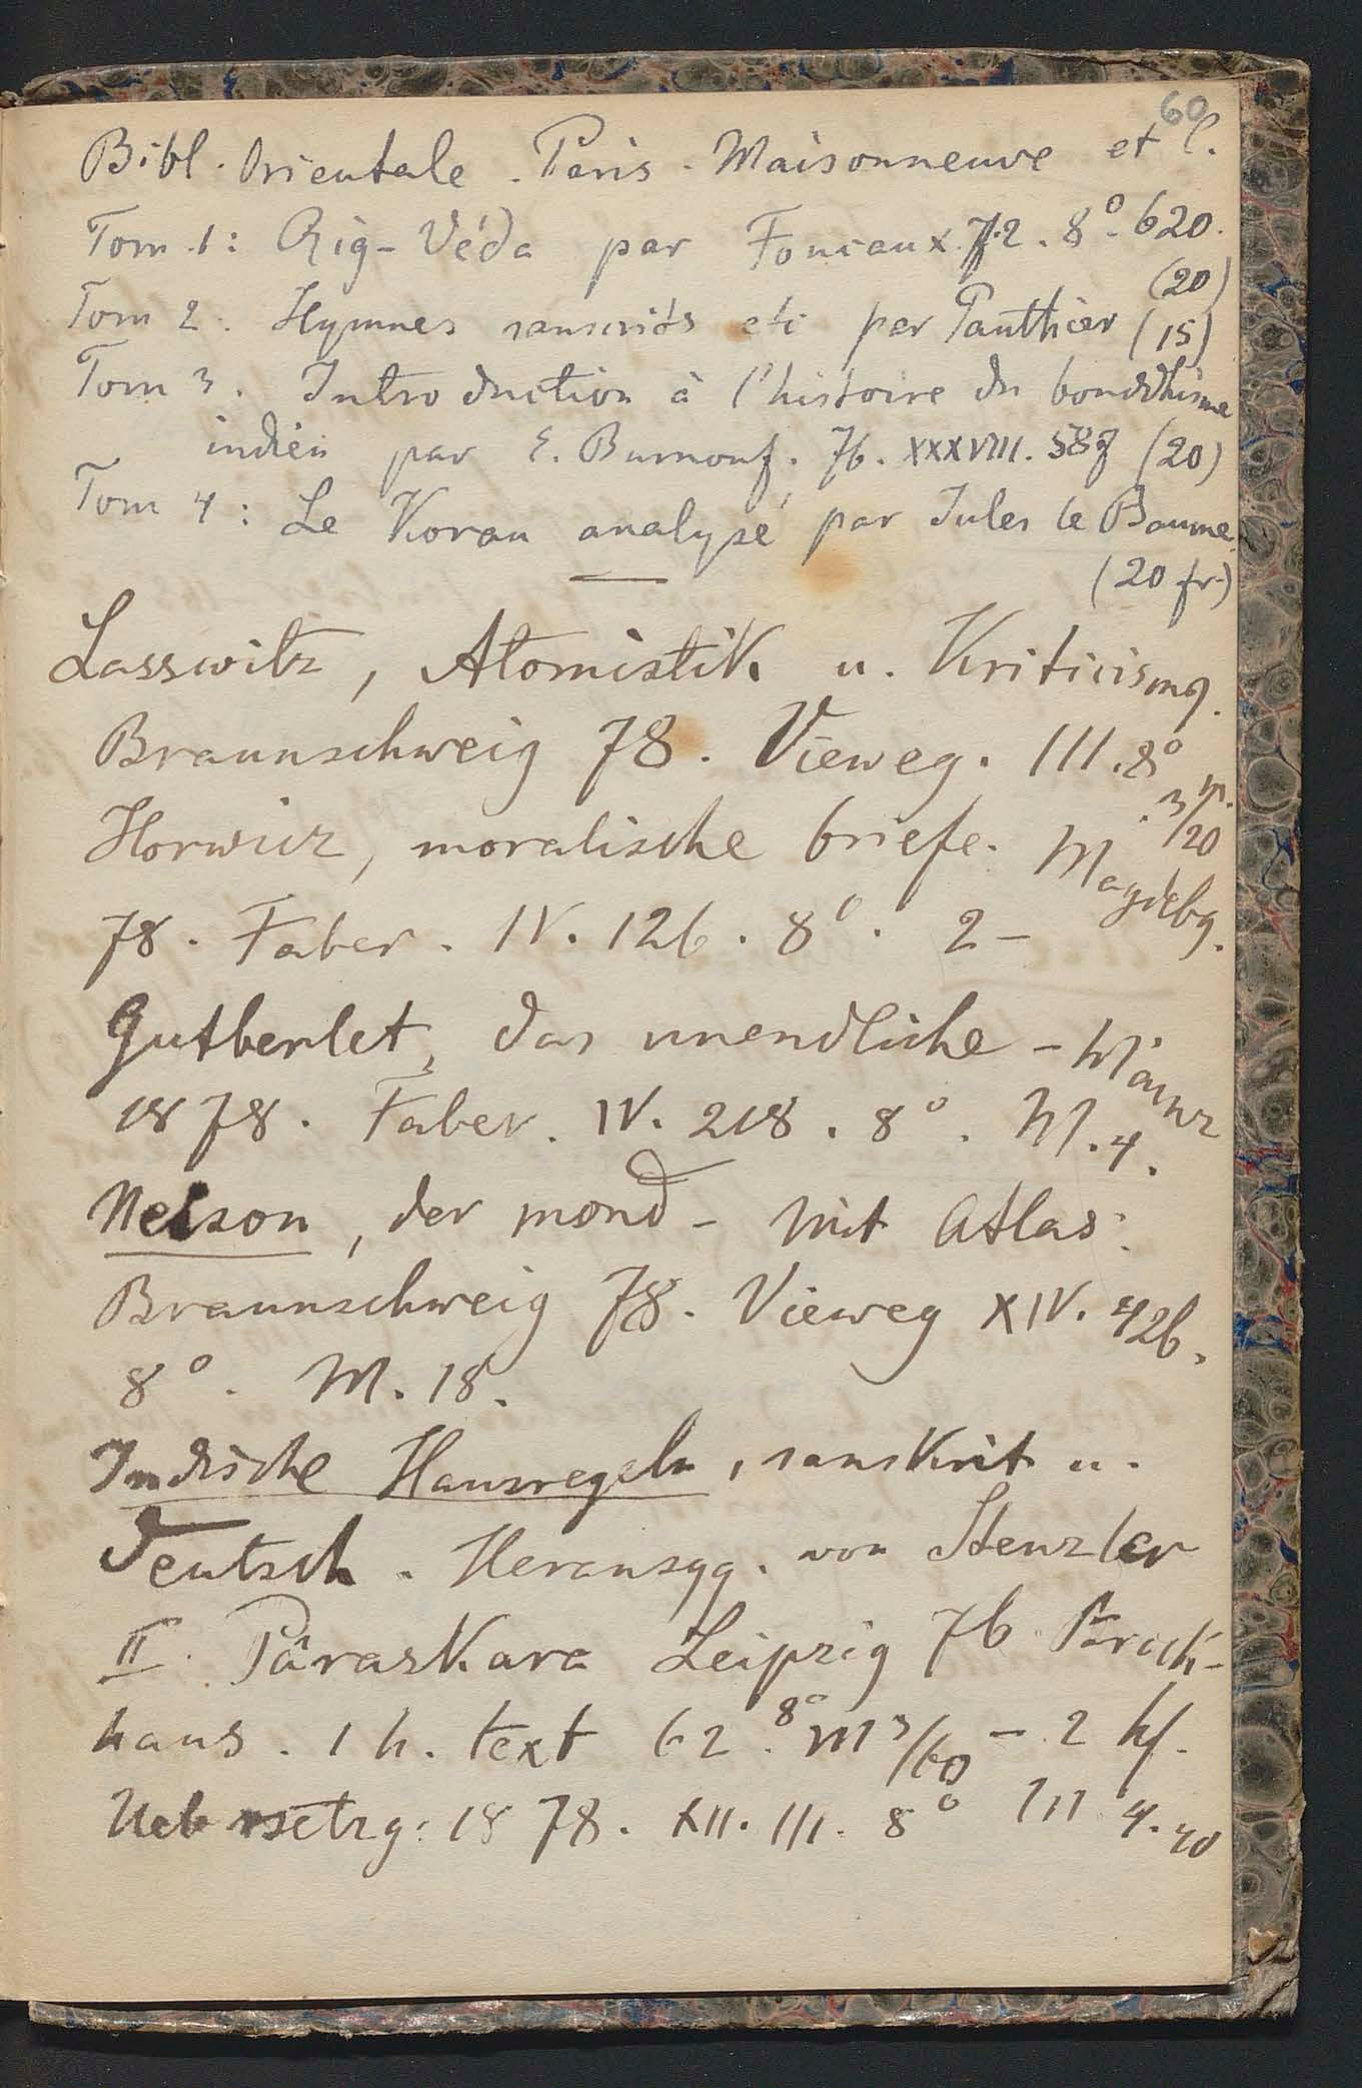 60
Bibl. Orientale. Paris. Maisonneuve et C.
Tom. 1: Rig-Véda par Foucaux. 72. 8°. 620.
(20)
Tom 2. Hymnes sanscrits etc par Pauthier (15)
Tom 3. Introduction à l'histoire du bouddhisme
indien par E. Burnouf. 76. XXXVIII. 587 (20)
Tom 4: Le Koran analysé par Jules le Baume.
(20 fr.)
Lasswitz, Atomistik u. Kriticismq.
Braunschweig 78. Vieweg. 111. 8°
m. 3/20
Horwicz, moralische briefe. Magdebg.
78. Faber. IV. 126. 8°. 2-
Gutberlet, das unendliche - Mainz
1878. Faber. IV. 218. 8°. M. 4.
Neison, der mond - Mit Atlas.
Braunschweig 78. Vieweg XIV. 426.
8°. M. 18.
Indische Hausregeln, sanskrit u.
Teutsch. Herausgg. von Stenzler
II. Pâraskara Leipzig 76 Brock-
haus. 1 h. text 62. 8° M 3/60 - 2 hf.
Uebersetzg: 1878. XII. 111. 8° M 4.40